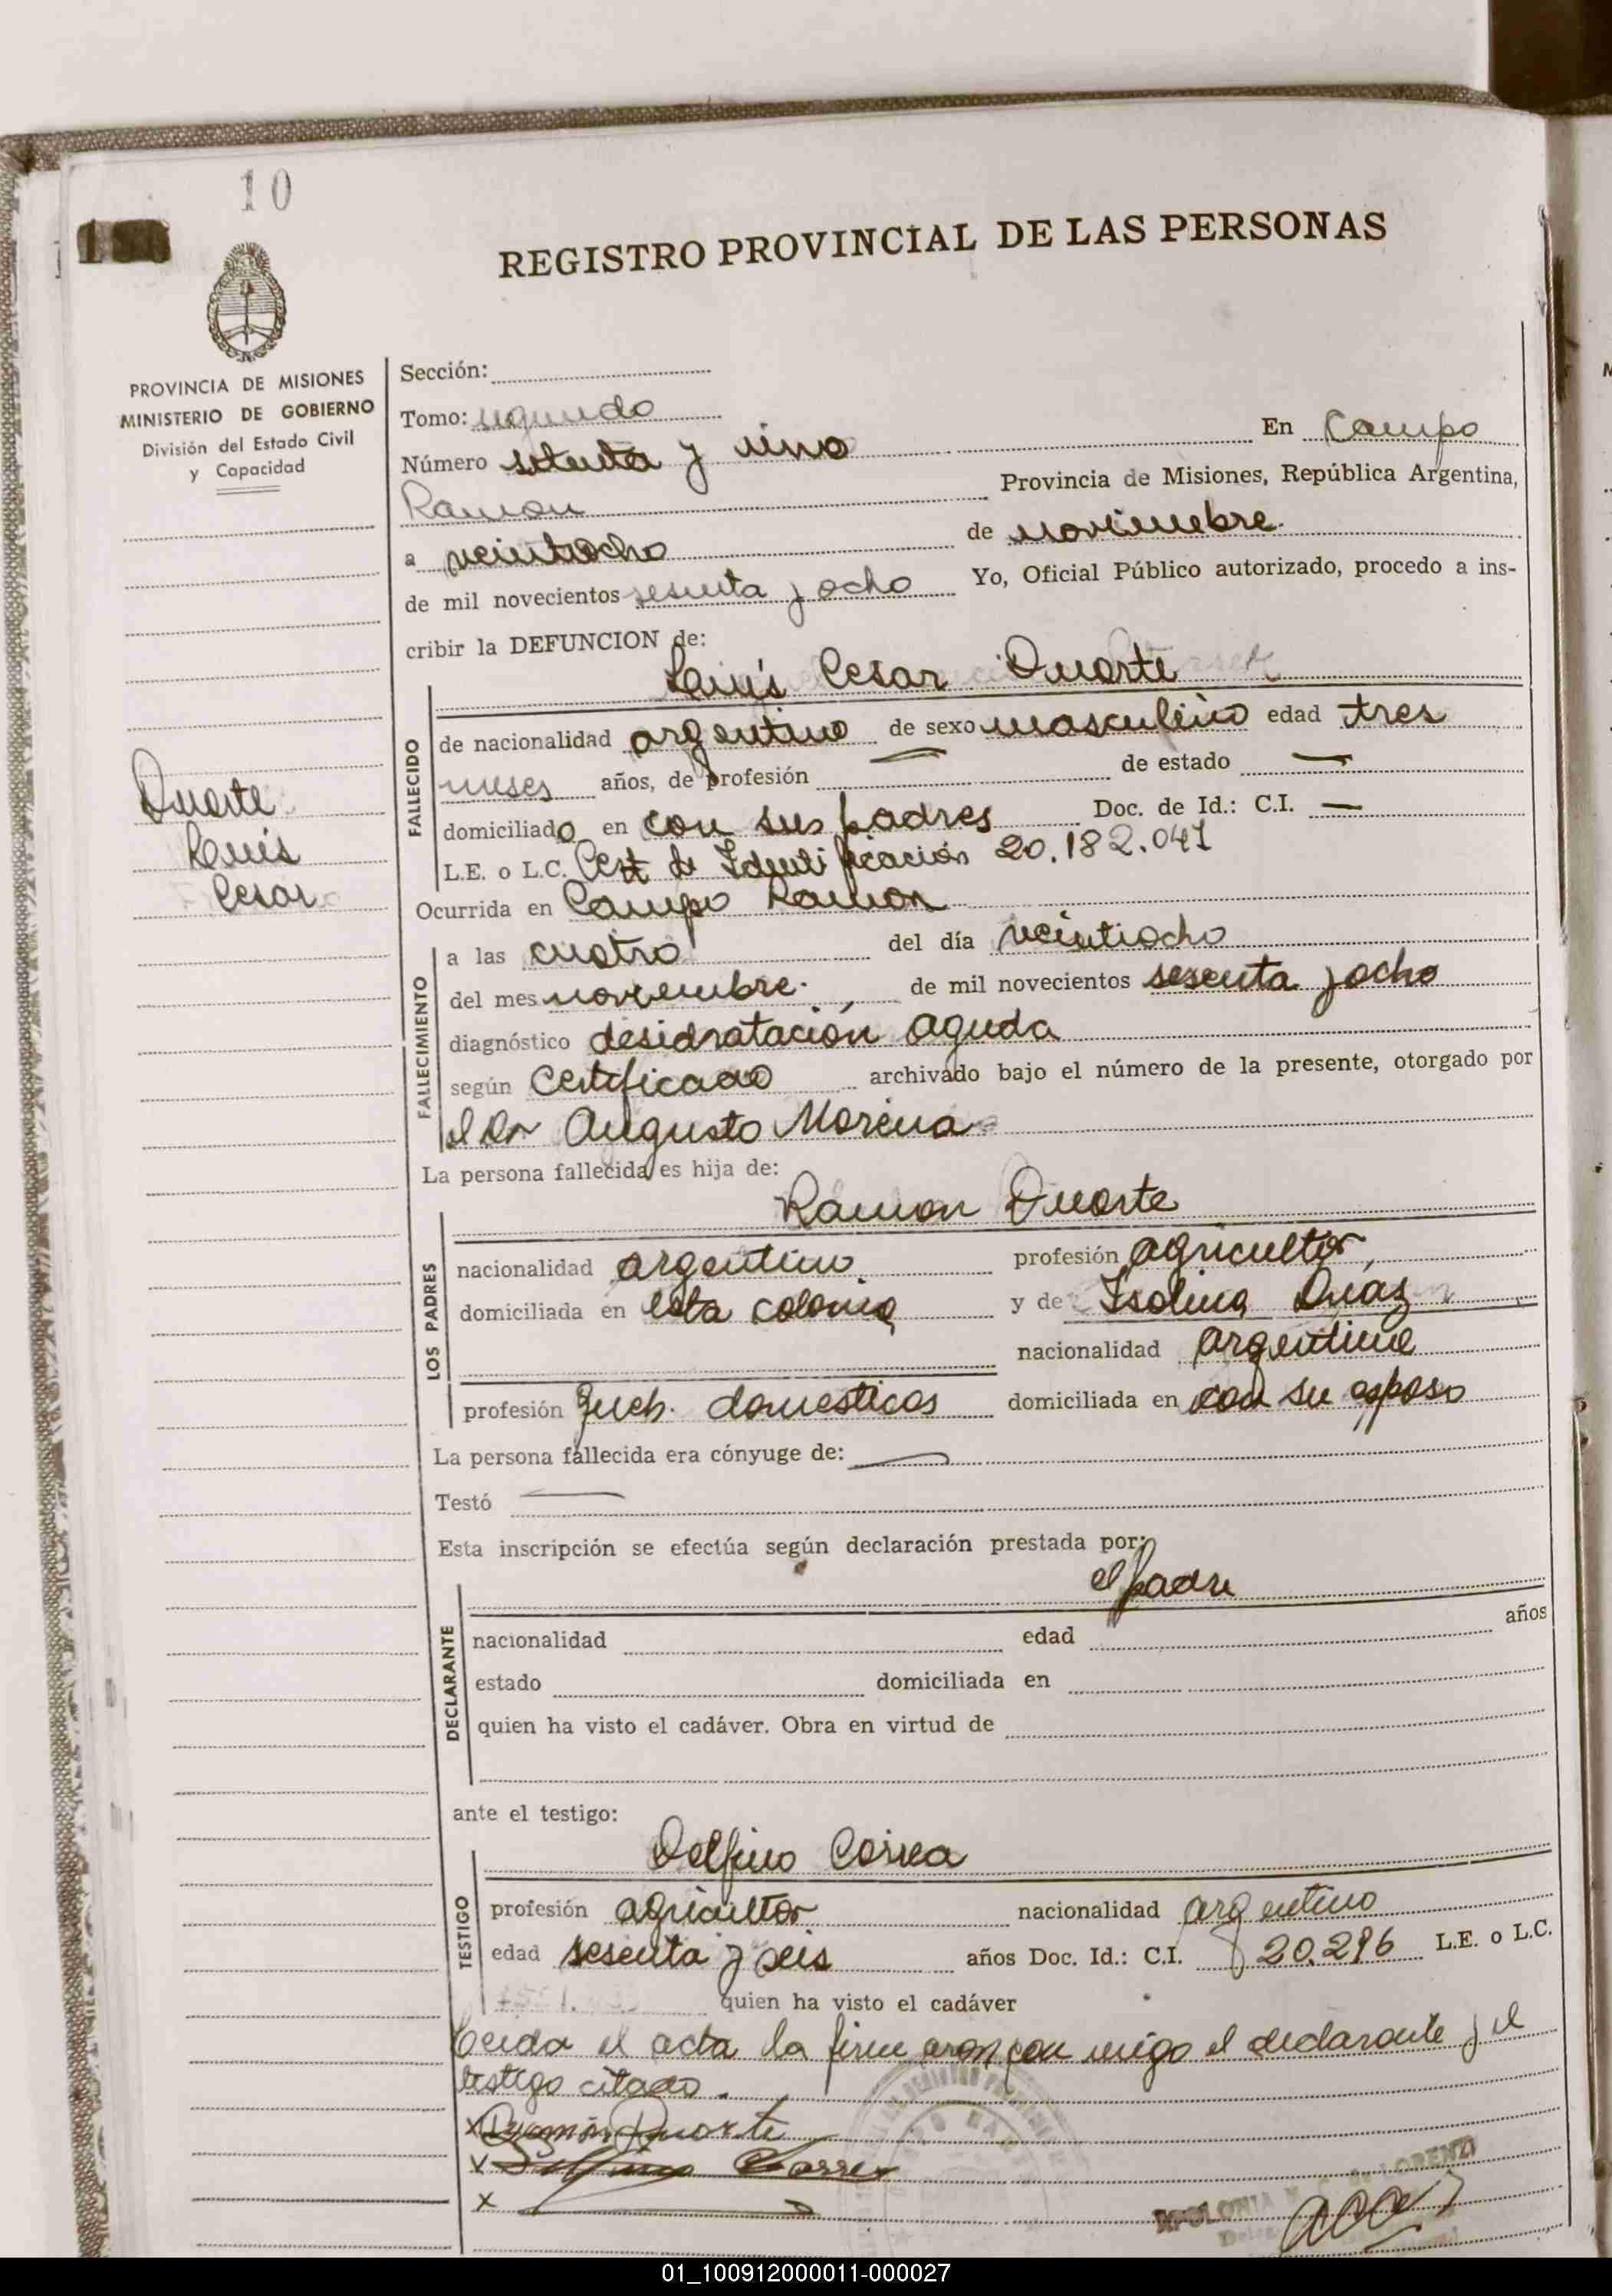 10
REGISTRO PROVINCIAL DE LAS PERSONAS
PROVINCIA DE MISIONES
MINISTERIO DE GOBIERNO
División del Estado Civil
y Capacidad
Sección:
Tomo: segundo
Número setenta y uno En Campo
Ramon Provincia de Misiones, República Argentina,
a veintiocho de noviembre.
de mil novecientos sesenta y ocho Yo, Oficial Público autorizado, procedo a ins-
cribir la DEFUNCION de:
Luis Cesar Duarte
FALLECIDO
de nacionalidad argentino de sexo masculino edad tres
meses años, de profesión — de estado —
Duarte
Luis
Cesar
domiciliado en con sus padres Doc. de Id.: C.I. —
L.E. o L.C. Cert de Identificación 20.182.041
Ocurrida en Campo Ramon
FALLECIMIENTO
a las cuatro del día veintiocho
del mes noviembre. de mil novecientos sesenta y ocho
diagnóstico desidratación aguda
según certificado archivado bajo el número de la presente, otorgado por
el Dr Augusto Morena
La persona fallecida es hija de:
Ramon Duarte
LOS PADRES
nacionalidad argentino profesión agricultor,
domiciliada en esta colonia y de Isolina Diaz
nacionalidad argentina
profesión queh. domesticos domiciliada en con su esposo
La persona fallecida era cónyuge de: —
Testó —
Esta inscripción se efectúa según declaración prestada por:
el padre
DECLARANTE
nacionalidad edad años
estado domiciliada en
quien ha visto el cadáver. Obra en virtud de
ante el testigo:
Delfino Correa
TESTIGO
profesión agricultor nacionalidad argentino
edad sesenta y seis años Doc. Id.: C.I. 20.296 L.E. o L.C.
quien ha visto el cadáver
Leida el acta la firmaron con migo el declarante y el
testigo citado.
x Ramón Duarte
x Delfino Correa
x
APOLONIA LORENZI
01_100912000011-000027